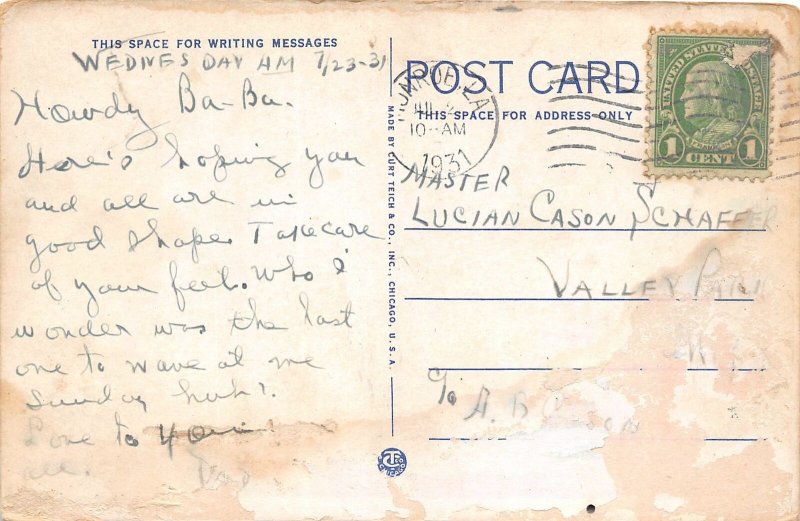 THIS SPACE FOR WRITING MESSAGES
WEDNESDAY AM 7/23-31
Howdy Ba-Ba.
Here's hoping you
and all are in
good shape. Take care
of your feet. Who I
wonder was the last
one to wave at me
Sunday huh?
Love to you
all.
Dad
MADE BY CURT TEICH & CO., INC., CHICAGO, U.S.A.
POST CARD
THIS SPACE FOR ADDRESS ONLY
MONROE, LA
JUL
10-AM
1931
UNITED STATES POSTAGE
FRANKLIN
1 CENT 1
MASTER
LUCIAN CASON SCHAFFER
VALLEY PARK
c/o A. B
C.T. & CO.
CHICAGO